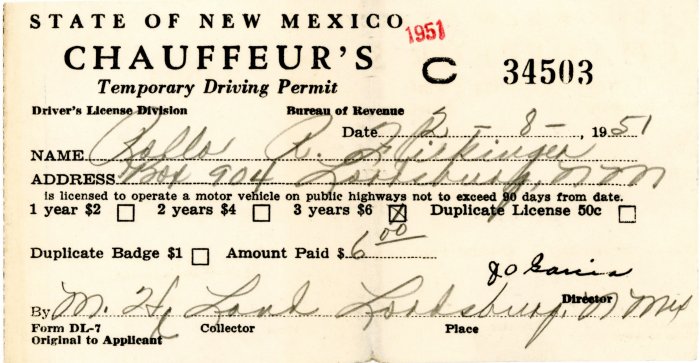 STATE OF NEW MEXICO 1951
CHAUFFEUR'S C 34503
Temporary Driving Permit
Driver's License Division Bureau of Revenue
Date 2-8-, 1951
NAME Rollo R.
ADDRESS Box 904 Lordsburg, N M
is licensed to operate a motor vehicle on public highways not to exceed 90 days from date.
1 year $2 2 years $4 3 years $6 X Duplicate License 50c
Duplicate Badge $1 Amount Paid $ 6 00
J O Garcia
Director
By M. H. Land Lordsburg, N Mex
Form DL-7 Collector Place
Original to Applicant